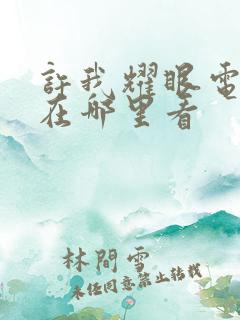 許我耀眼電
在哪里看
林間雪
未任同意禁止转载